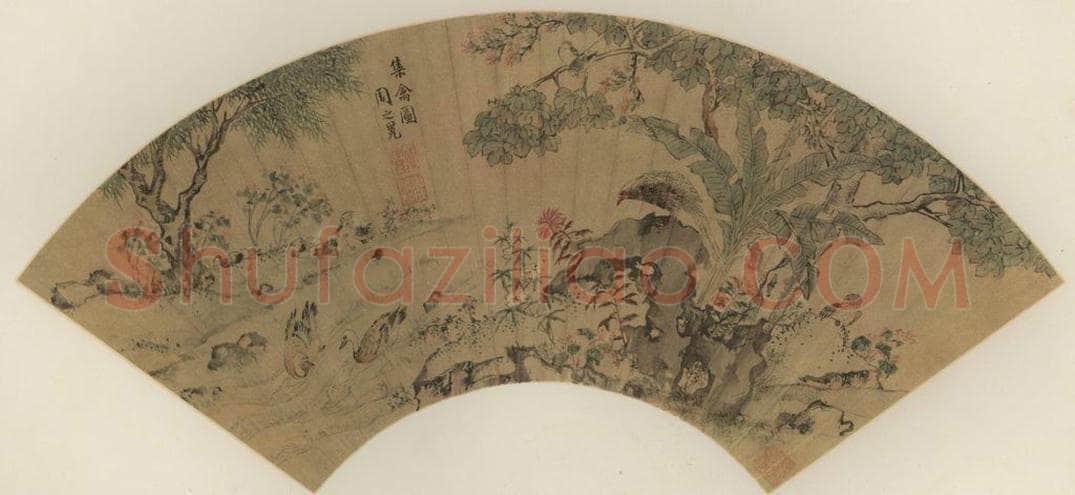 集禽圖
周之冕
Shufaziliao.COM